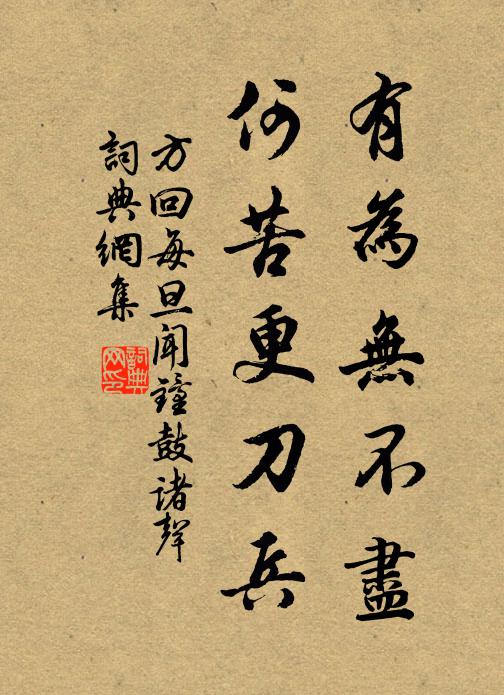 有為無不盡
何苦更刀兵
方回每旦聞鐘鼓諸聲
詞典網集
詞典網印